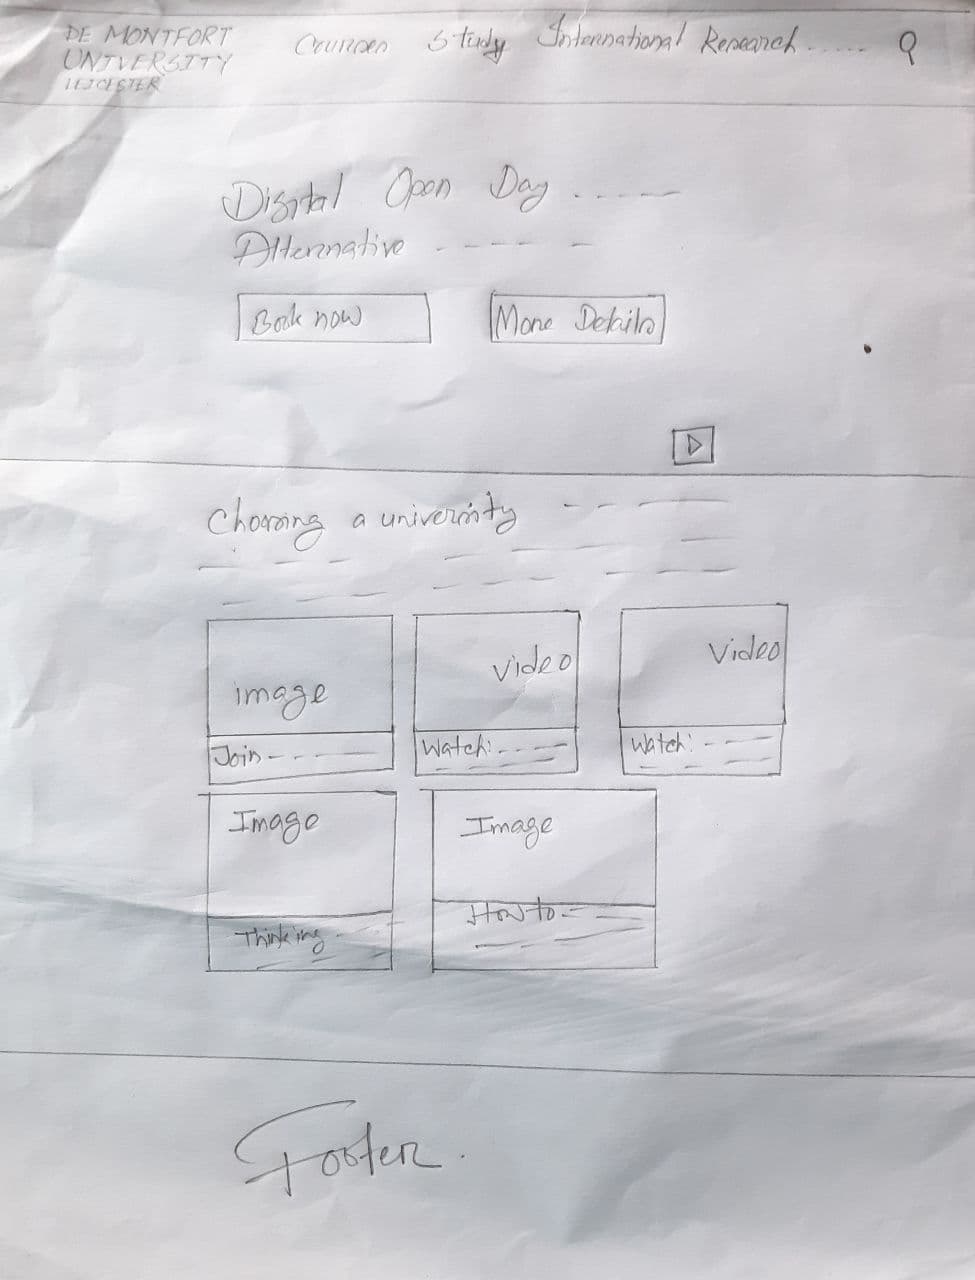 DE MONTFORT
UNIVERSITY
LEICESTER
Courses Study International Research ......
Digital Open Day .....
Alternative - - - - -
Book now
More Details
Choosing a university - - -
image
video
Video
Join - - -
Watch: - - -
Watch: - - -
Image
Image
Thinking -
How to - -
Footer.